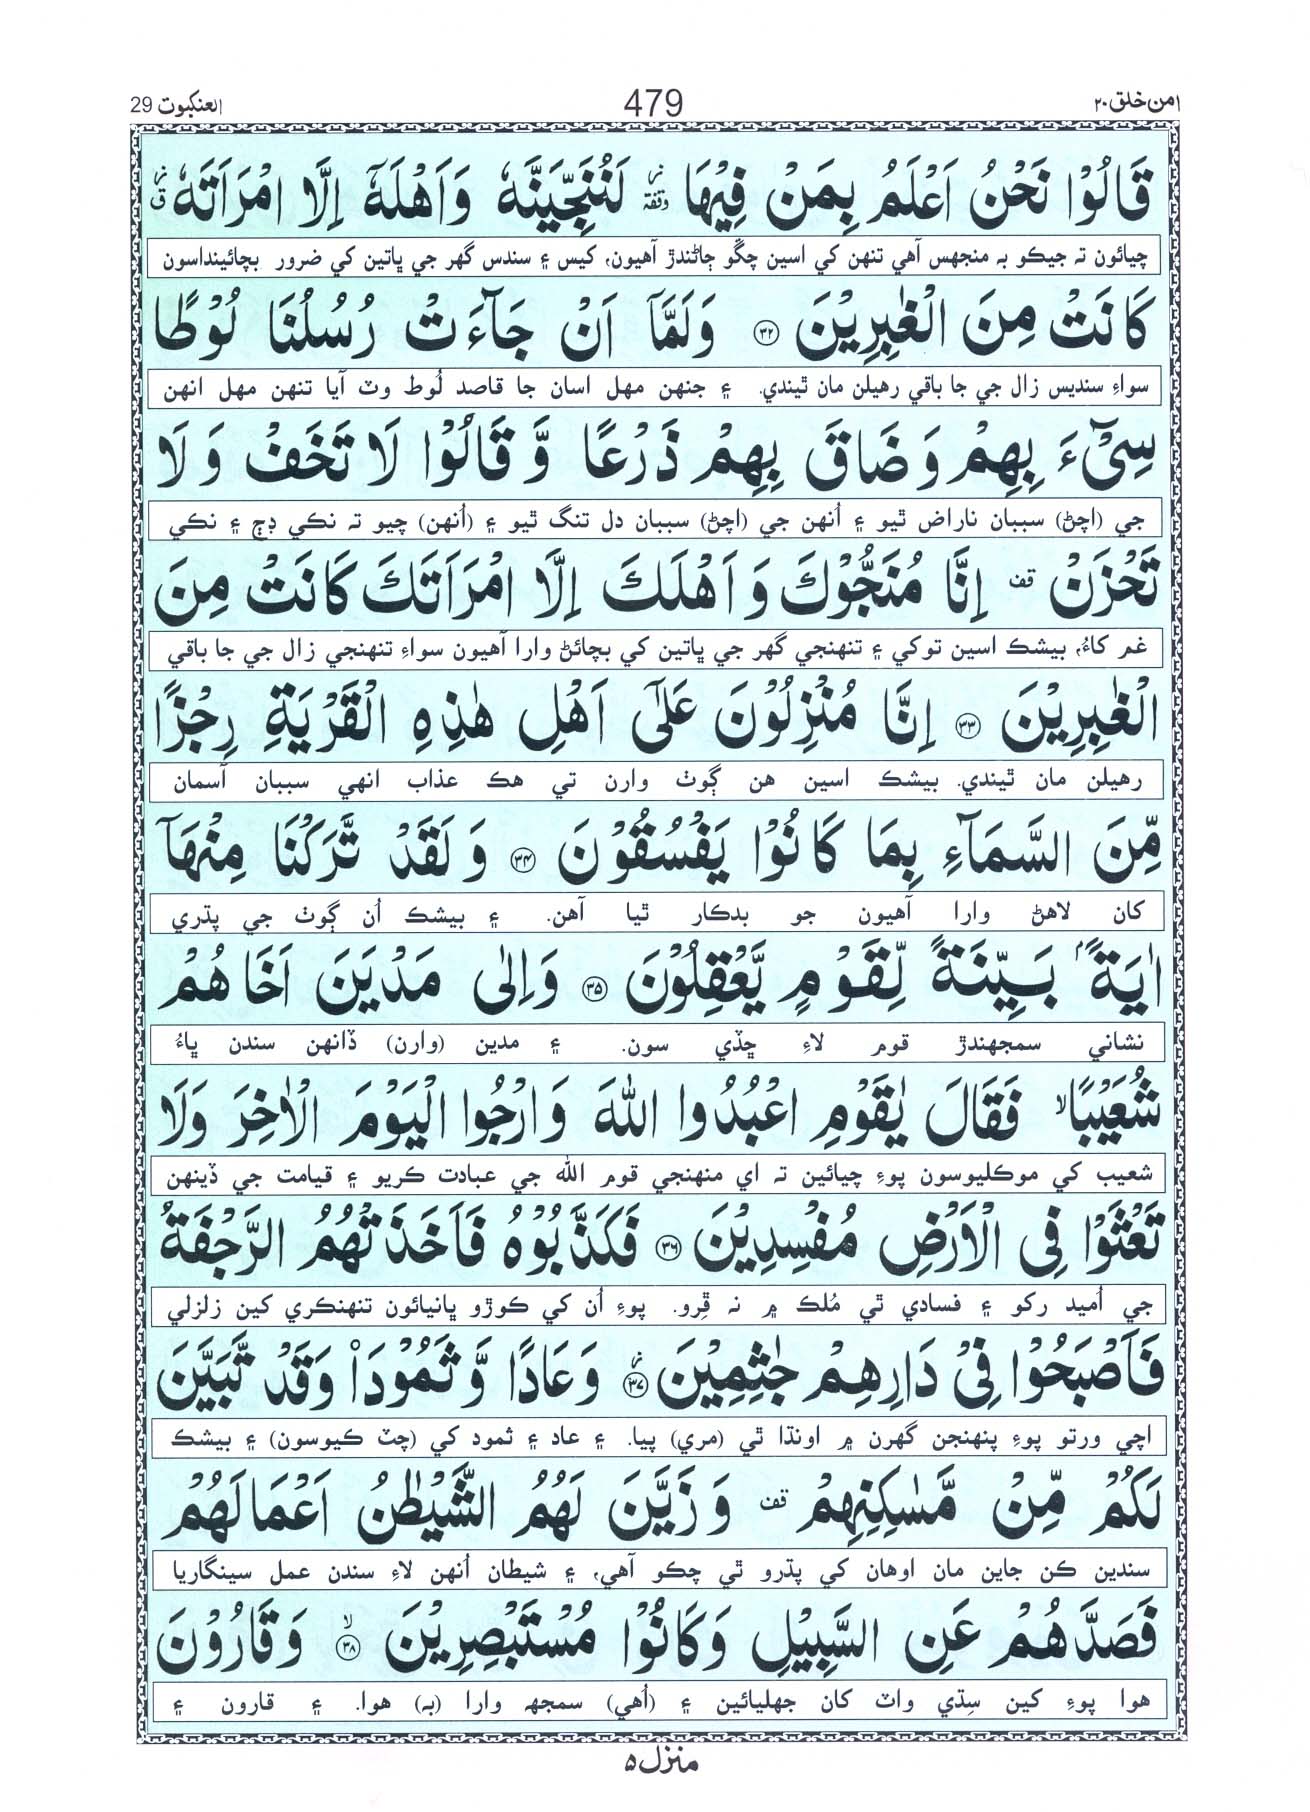 امن خلق ۲۰ 479 العنکبوت 29
قَالُوْا نَحْنُ اَعْلَمُ بِمَنْ فِيْهَا ۥ وقفة لَنُنَجِّيَنَّهٗ وَاَهْلَهٗٓ اِلَّا امْرَاَتَهٗ ق
چيائون ته جيڪو به منجهس آهي تنهن کي اسين چڱو ڄاڻندڙ آهيون، کيس ۽ سندس گهر جي ڀاتين کي ضرور بچائينداسون
كَانَتْ مِنَ الْغٰبِرِيْنَ ۝۳۲ وَلَمَّآ اَنْ جَآءَتْ رُسُلُنَا لُوْطًا
سواءِ سنديس زال جي جا باقي رهيلن مان ٿيندي. ۽ جنهن مهل اسان جا قاصد لُوط وٽ آيا تنهن مهل انهن
سِيْٓءَ بِهِمْ وَضَاقَ بِهِمْ ذَرْعًا وَّقَالُوْا لَا تَخَفْ وَلَا
جي (اچڻ) سببان ناراض ٿيو ۽ اُنهن جي (اچڻ) سببان دل تنگ ٿيو ۽ (اُنهن) چيو ته نڪي ڊڄ ۽ نڪي
تَحْزَنْ قف اِنَّا مُنَجُّوْكَ وَاَهْلَكَ اِلَّا امْرَاَتَكَ كَانَتْ مِنَ
غم کاءُ، بيشڪ اسين توکي ۽ تنهنجي گهر جي ڀاتين کي بچائڻ وارا آهيون سواءِ تنهنجي زال جي جا باقي
الْغٰبِرِيْنَ ۝۳۳ اِنَّا مُنْزِلُوْنَ عَلٰٓى اَهْلِ هٰذِهِ الْقَرْيَةِ رِجْزًا
رهيلن مان ٿيندي. بيشڪ اسين هن ڳوٺ وارن تي هڪ عذاب انهي سببان آسمان
مِّنَ السَّمَآءِ بِمَا كَانُوْا يَفْسُقُوْنَ ۝۳۴ وَلَقَدْ تَّرَكْنَا مِنْهَآ
کان لاهڻ وارا آهيون جو بدڪار ٿيا آهن. ۽ بيشڪ اُن ڳوٺ جي پڌري
اٰيَةًۢ بَيِّنَةً لِّقَوْمٍ يَّعْقِلُوْنَ ۝۳۵ وَاِلٰى مَدْيَنَ اَخَاهُمْ
نشاني سمجهندڙ قوم لاءِ ڇڏي سون. ۽ مدين (وارن) ڏانهن سندن ڀاءُ
شُعَيْبًا ۙ فَقَالَ يٰقَوْمِ اعْبُدُوا اللّٰهَ وَارْجُوا الْيَوْمَ الْاٰخِرَ وَلَا
شعيب کي موڪليوسون پوءِ چيائين ته اي منهنجي قوم الله جي عبادت ڪريو ۽ قيامت جي ڏينهن
تَعْثَوْا فِى الْاَرْضِ مُفْسِدِيْنَ ۝۳۶ فَكَذَّبُوْهُ فَاَخَذَتْهُمُ الرَّجْفَةُ
جي اُميد رکو ۽ فسادي ٿي مُلڪ ۾ نه ڦِرو. پوءِ اُن کي ڪوڙو ڀانيائون تنهنڪري کين زلزلي
فَاَصْبَحُوْا فِيْ دَارِهِمْ جٰثِمِيْنَ ۝۳۷ وَعَادًا وَّثَمُوْدَا۟ وَقَدْ تَّبَيَّنَ
اچي ورتو پوءِ پنهنجن گهرن ۾ اونڌا ٿي (مري) پيا. ۽ عاد ۽ ثمود کي (چٽ ڪيوسون) ۽ بيشڪ
لَكُمْ مِّنْ مَّسٰكِنِهِمْ قف وَزَيَّنَ لَهُمُ الشَّيْطٰنُ اَعْمَالَهُمْ
سندين ڪن جاين مان اوهان کي پڌرو ٿي چڪو آهي، ۽ شيطان اُنهن لاءِ سندن عمل سينگاريا
فَصَدَّهُمْ عَنِ السَّبِيْلِ وَكَانُوْا مُسْتَبْصِرِيْنَ ۙ۝۳۸ وَقَارُوْنَ
هوا پوءِ کين سِڌي واٽ کان جهليائين ۽ (اُهي) سمجهه وارا (به) هوا. ۽ قارون ۽
منزل ۵